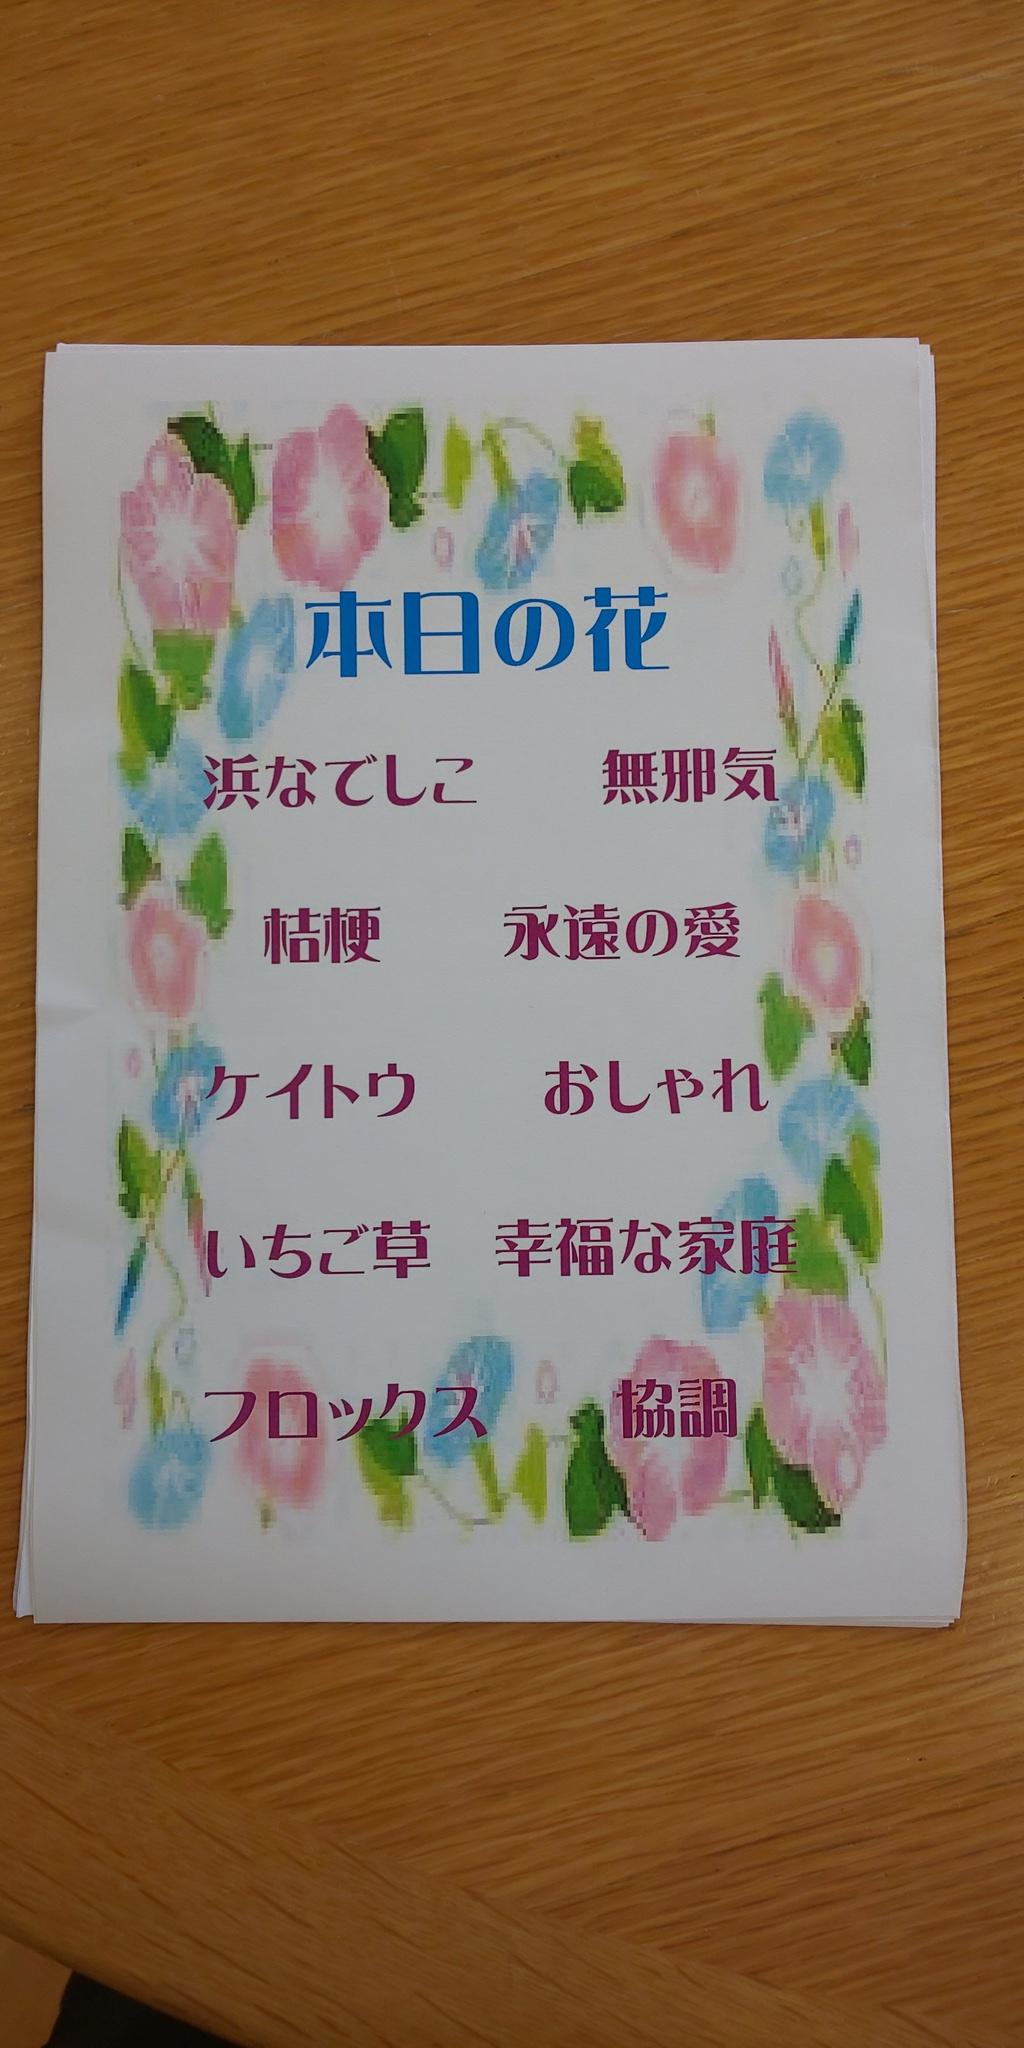 本日の花
浜なでしこ　無邪気
桔梗　永遠の愛
ケイトウ　おしゃれ
いちご草　幸福な家庭
フロックス　協調